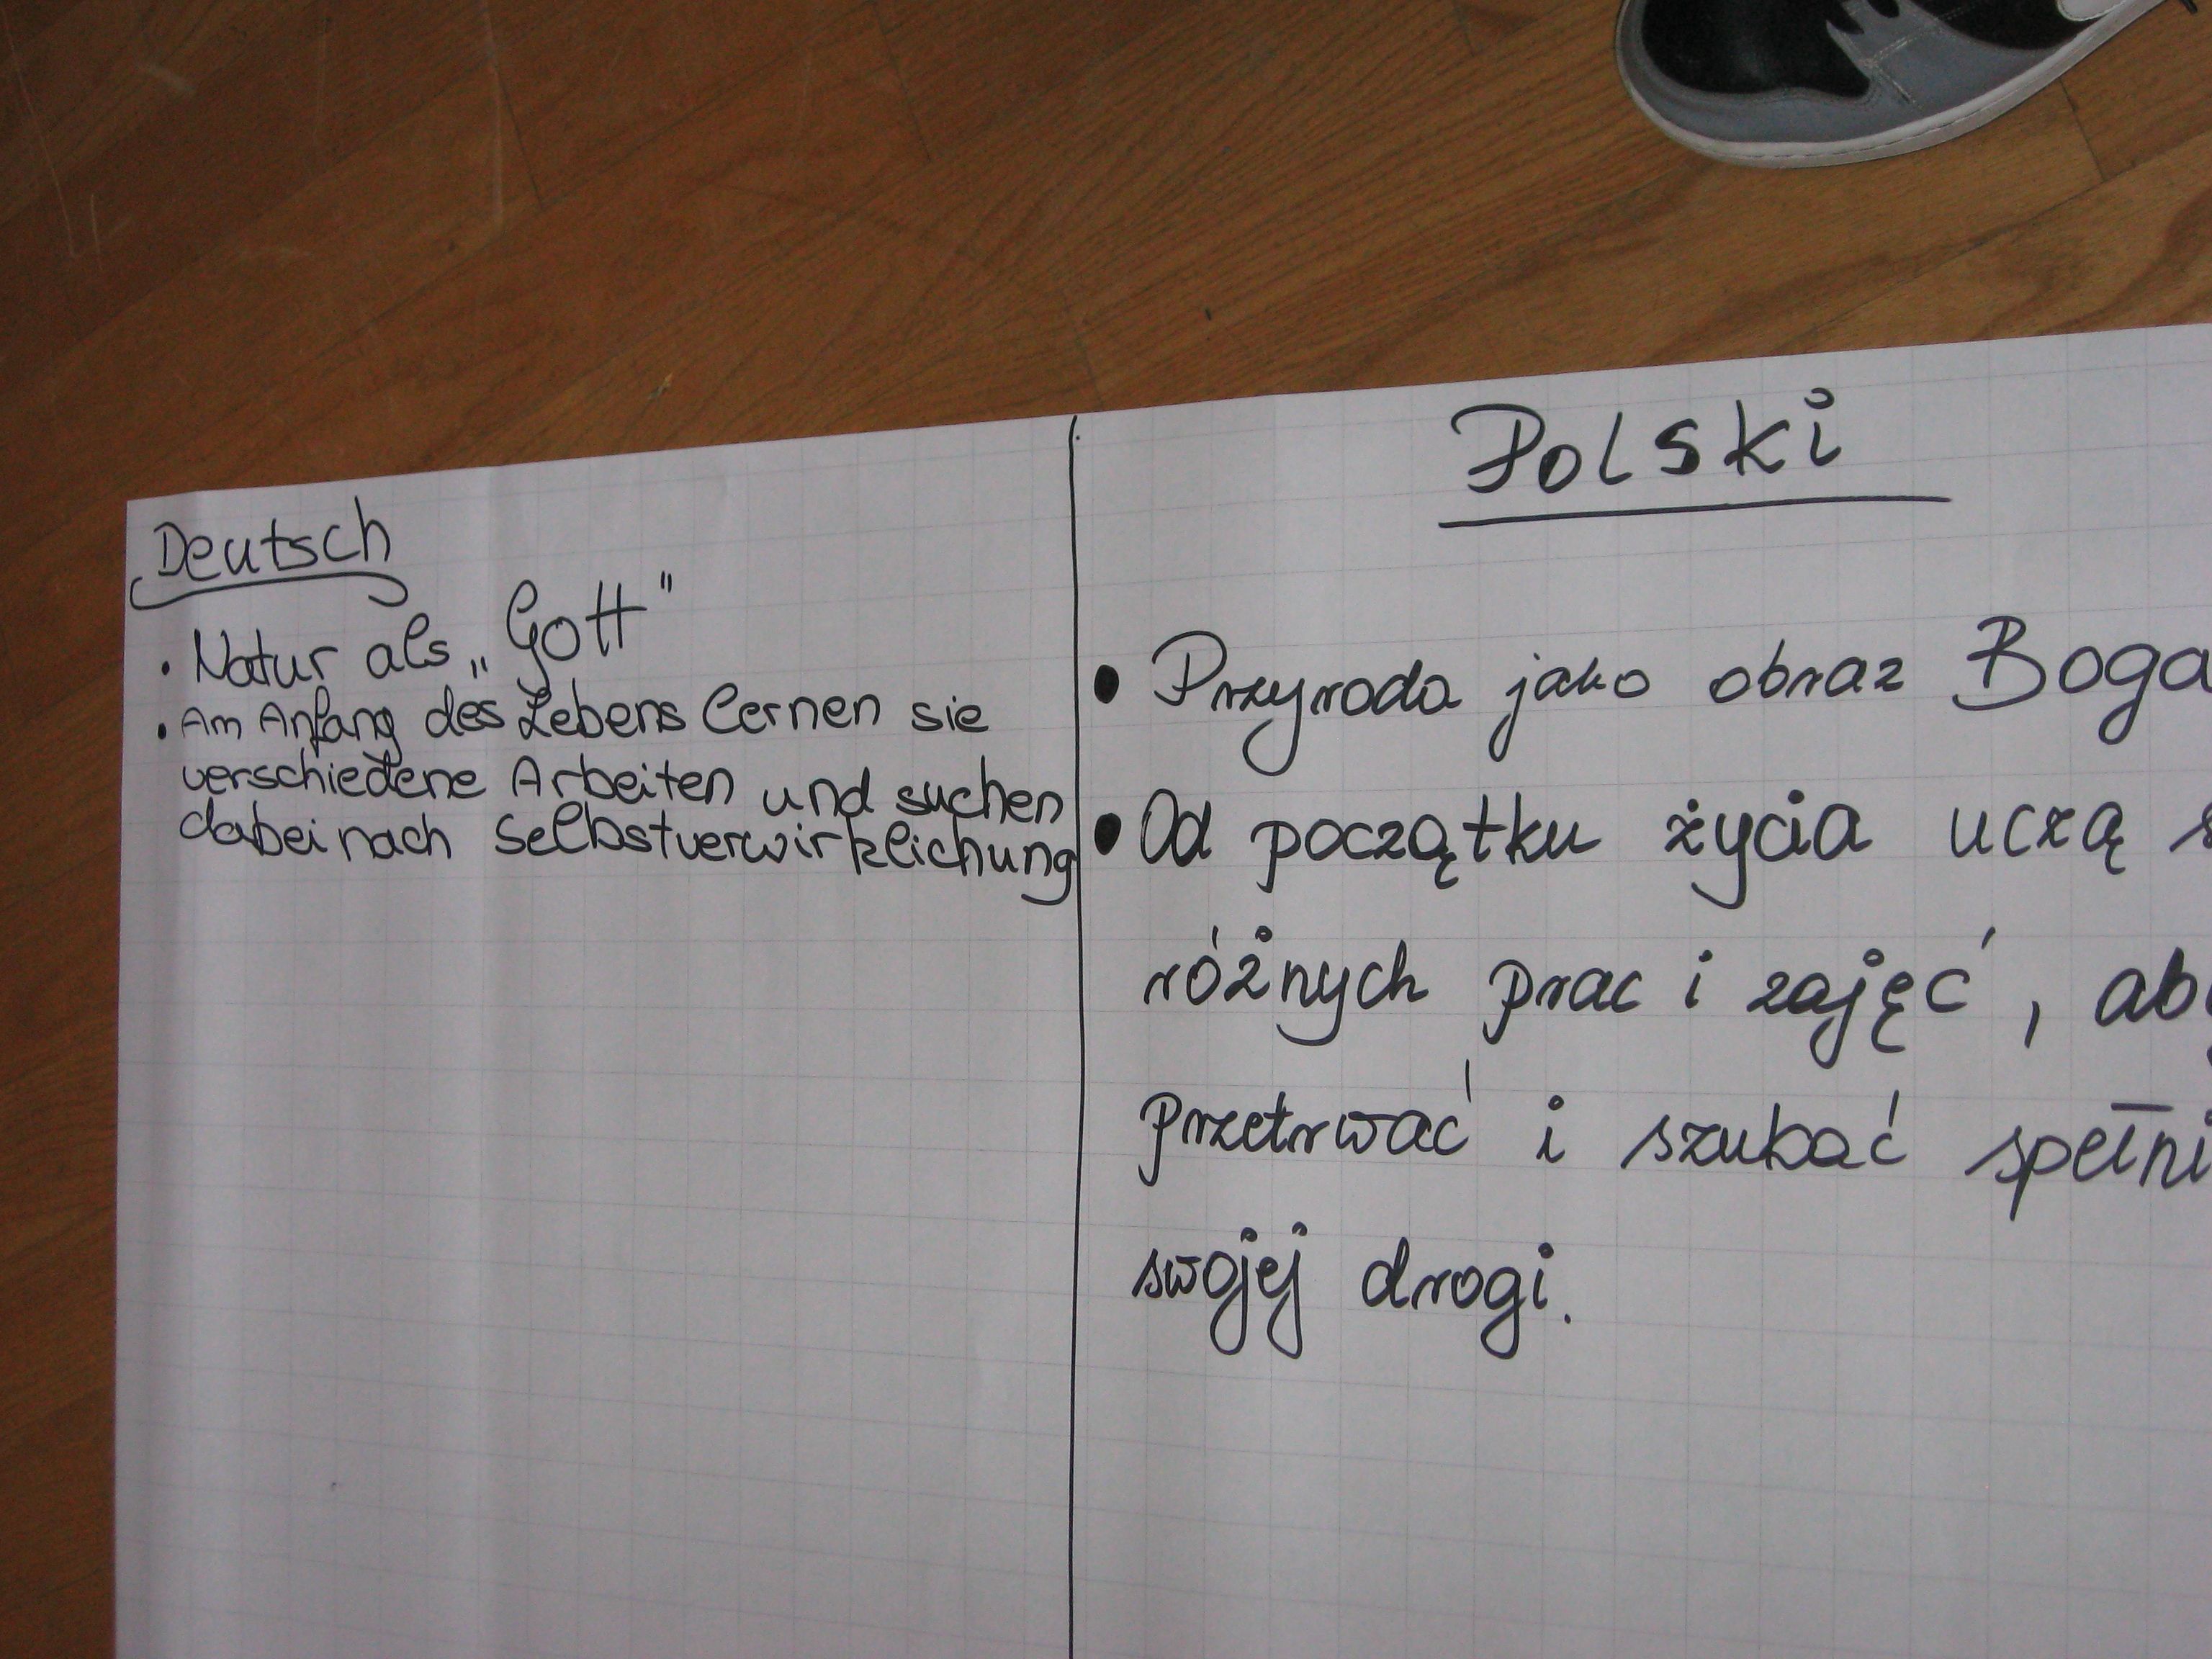 Deutsch
• Natur als „Gott"
• Am Anfang des Lebens lernen sie
verschiedene Arbeiten und suchen
dabei nach Selbstverwirklichung
Polski
• Przyroda jako obraz Boga
• Od początku życia uczą
różnych prac i zajęć,
przetrwać i szukać
swojej drogi.